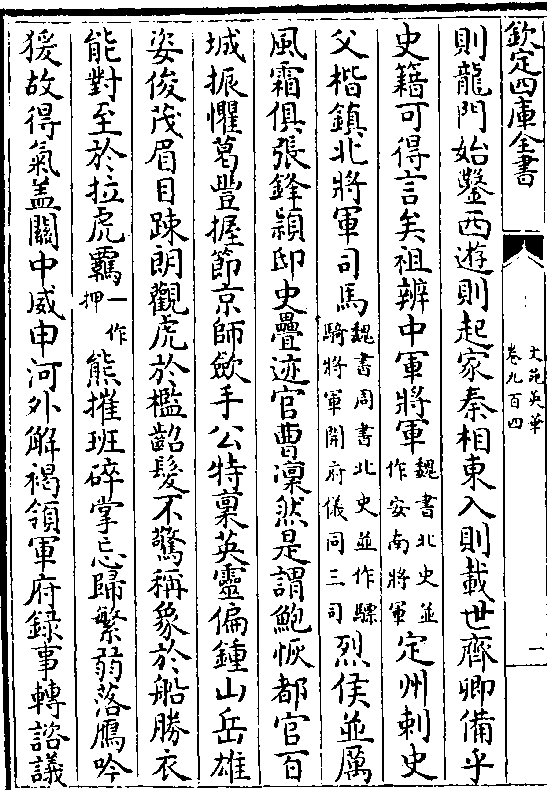 欽定四庫全書
文苑英華
卷九百四
一
則龍門始鑿西遊則起家秦相東入則載世齊卿備乎
史籍可得言矣祖辨中軍將軍魏書北史並作安南將軍定州刺史
父楷鎮北將軍司馬魏書周書北史並作驃騎將軍開府儀同三司烈侯並厲
風霜俱張鋒穎邸史疊迹官曹凜然是謂鮑恢都官百
城振懼葛豐握節京師歛手公特稟英靈偏鍾山岳雄
姿俊茂眉目踈朗觀虎於檻齠髮不驚稱象於船勝衣
能對至於拉虎羈一作押熊摧班碎掌忘歸繁弱落鴈吟
猨故得氣蓋關中威申河外解褐領軍府録事轉諮議